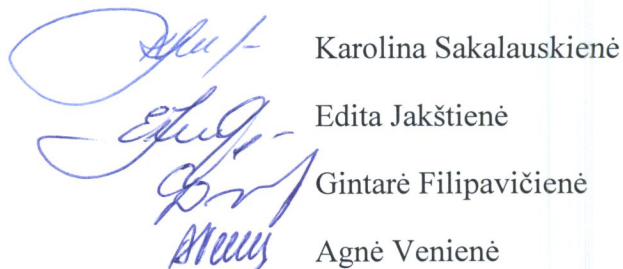 Karolina Sakalauskienė
Edita Jakštienė
Gintarė Filipavičienė
Agnė Venienė